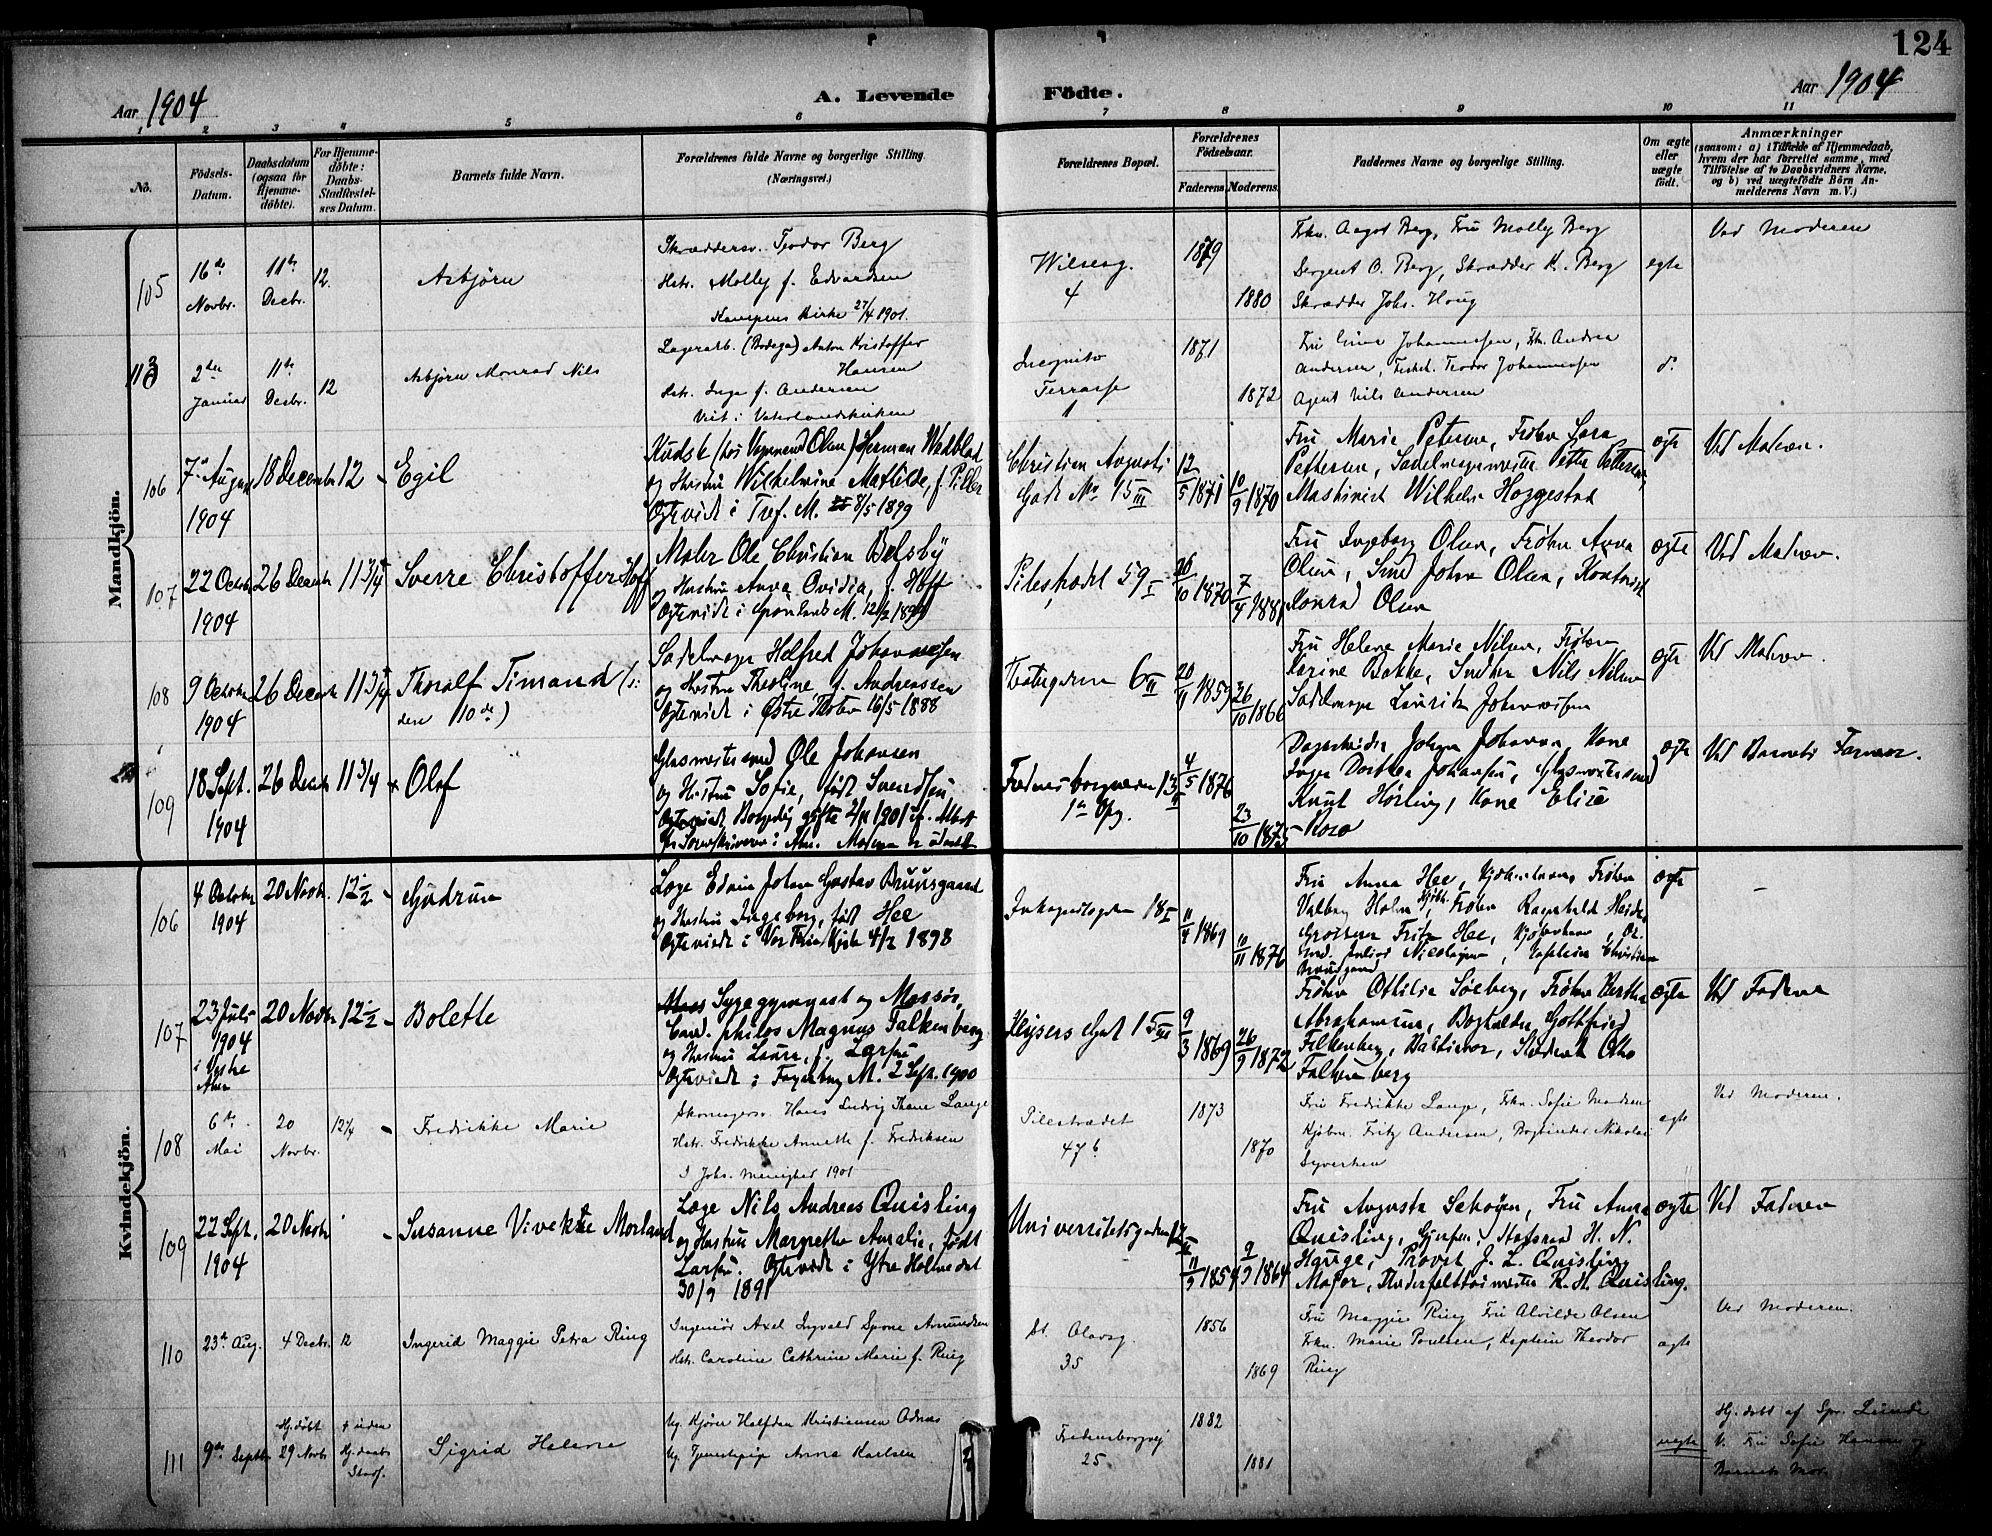 124
Aar 1904
A. Levende Födte.
Aar 1904
1 2 3 4 5 6 7 8 9 10 11
No.
Födsels-Datum.
Daabsdatum (ogsaa for Hjemme-döbte).
For Hjemme-döbte: Daabs-Stadfæstel-ses Datum.
Barnets fulde Navn.
Forældrenes fulde Navne og borgerlige Stilling.
(Næringsvei.)
Forældrenes Bopæl.
Forældrenes Födselsaar.
Faderens. Moderens.
Faddernes Navne og borgerlige Stilling.
Om ægte eller uægte födt.
Anmærkninger
(saasom: a) i Tilfælde af Hjemmedaab, hvem der har forrettet samme, med Tilföielse af to Daabsvidners Navne, og b) ved uægtefödte Börn An-melderens Navn m. V.)
Mandkjön.
105 16de Novbr. 11te Decbr. 12. Asbjörn
Skræddersv. Teodor Berg
Hstr. Molly f. Edvardsen
Kampens Kirke 27/4 1901.
Wilsesg. 4
1879 1880
Frkn. Aagot Berg, Fru Molly Berg
Sergent O. Berg, Skrædder K. Berg
Skrædder Johs. Houg
egte
Ved Moderen
113 2den Januar 11te Decbr. 12 Asbjörn Monrad Nils
Lagerarb. (Bodega) Anton Kristoffer Hansen
Hstr. Inga f. Andersen
Viet i Vaterlandskirken
Incognito Terrasse 1
1871 1872
Johannessen, Frk. Andrea
Andersen, Teodor Johannessen
Agent Nils Andersen
do
106 7 August 1904 18 December 12 – Egil
Kudsk (hos Vognmand Olsen) Herman Wedblad
og Hustru Wilhelmine Mathilde, f. Piller
Ogteviet i Tref. M. 8/5 1899
Christian Augusts Gade No 15 III
12/5 1871 10/9 1870
Fru Marie Petersen, Frøken Sara
Pettersen, Sadelmagermester Petter Pettersen,
Maskinist Wilhelm Hoggestad
ægte
Ved Moderen.
107 22 October 1904 26 Decemb 11 3/4 Sverre Christoffer Hoff
Maler Ole Christian Belsby
og Hustru Anna Ovidia, f. Hoff
Ogteviet i Grønlands M. 12/2 1899
Pilestrædet 59 I
26/10 1870 7/4 1881
Fru Ingeborg Olsen, Frøken Anna
Olsen, Smed Johan Olsen, Kontorist
Konrad Olsen
ægte
Ved Moderen.
108 9 October 1904 26 Decemb 11 3/4 Thoralf Timand (:
den 10de)
Sadelmager Helfred Johannesen
og Hustru Theoline, f. Andreassen
Ogteviet i Østre Thoten 16/5 1888
6 II
20/11 1859 26/10 1866
Fru Helene Marie Nilsen, Frøken
Karine Bakke, Snedker Nils Nilsen
Sadelmager Laurits Johannesen
ægte
Ved Moderen.
109 18 Sept. 1904 26 Decemb 11 3/4 Olaf
Glasmestersvend Ole Johansen
og Hustru Sofie, født Svendsen
Borgerlig gifte 2/11 1901
Fredensborgveien 13 II
1ste Opg.
4/5 1876 23/10 1875
Johan Johansen, Kone
Inger Dorthea Johansen, Glasmestersvend
Knut Hørling, Kone Elise
Rosa
ægte
Ved Barnets Farmor.
Kvindekjön.
106 4 October 1904 20 Novbr. 12 1/2 – Gudrun
Læge Edvin Johan Gustav Bruusgaard
og Hustru Ingeborg, født Hee
Ogteviet i Vor Frue Kjøbh 4/2 1898
18 I
11/4 1869 10/11 1876
Fru Anna Hee, Kjøbenhavn, Frøken
Valborg Holm Kjøbh., Frøken Ragnhild Heide
Grosserer Fritz Hee, Kjøbenhavn, Dr.
med. Julius Nicolaysen, Kaptein Christian
Bruusgaard
ægte
–
107 23 Juli 1904 i Vestre Aker 20 Novbr 12 1/2 – Bolette
Sygegymnast og Massør,
Cand. philos Magnus Falkenberg
og Hustru Laura, f. Larsen
Ogteviet i Fagerborg M. 2 Sept. 1900
Keysers Gate 15 III
9/3 1869 26/9 1872
Frøken Othilia Solberg, Frøken Bertha
Abrahamsen, Bogholder Gottfried
Falkenberg, Student Otto
Falkenberg
ægte
Ved Faderen
108 6te Mai 20 Novbr. 12 1/4 – Fredrikke Marie
Skomagersv. Hans Ludvig Thane Lange
Hstr. Fredrikke Annette f. Fredriksen
I Johs. menighed 1901
Pilestrædet 47 b
1873 1870
Fru Fredrikke Lange, Frkn. Sofie Madsen
Kjøbm. Fritz Andersen, Bogbinder Nikolai
Syvertsen
egte
Ved Moderen.
109 22 Sept. 1904 20 Novbr – Susanne Vivekke Morland
Læge Nils Andreas Quisling
og Hustru Margrethe Amalie, født
Larsen. Ogteviet i Ytre Holmedal
30/9 1891
Universitetsgaden
11/9 1854 9/9 1864
Fru Augusta Schøyen, Fru Anna
Quisling, Gjerpen, Statsraad H. N.
Hauge, Provst J. L. Quisling,
Major, R. H. Quisling.
ægte
Ved Faderen
110 23de Aug. 4 Decbr. 12 Ingerid Maggie Petra Ring
Ingeniör Axel Ingvald Spone Amundsen
Hstr. Caroline Cathrine Marie f. Ring
St. Olavsg. 35
1856 1869
Fru Maggie Ring Fru Alvilde Olsen
Frkn. Marie Poulsen, Kaptein Theodor
Ring
ægte
Ved Moderen.
111 9de Septbr Hj. döbt 29 Novbr † uden Hj.daabs Stadf. Sigrid Helene
Ug. Kjörer Halfdan Kristiansen Odnæs
Ug. Tjenestepige Anna Karlsen
Fredensborgvej 25.
1882 1881
uegte
Hj. döbt af Spr. Lunde
V. Fru Sofie Hansen og
Barnets Mor.